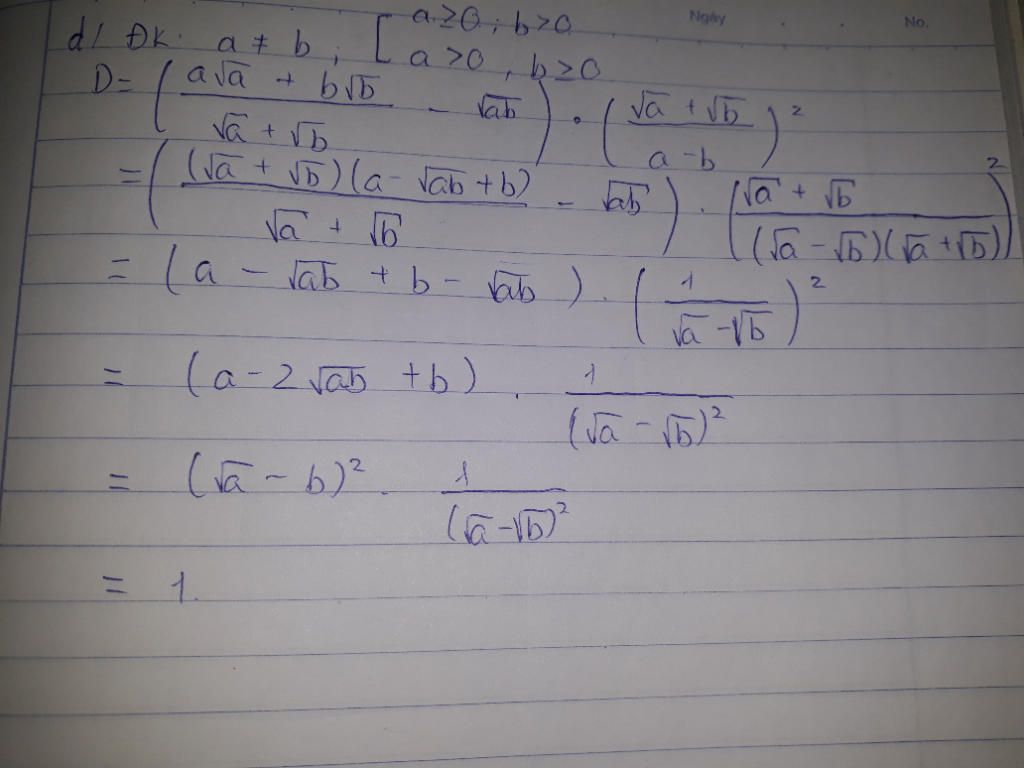 Ngày . . No.
d/ ĐK: a ≠ b ; [ a ≥ 0 ; b > 0
a > 0 , b ≥ 0
D = ( (a√a + b√b)/(√a + √b) - √ab ) • ( (√a + √b)/(a - b) )²
= ( ((√a + √b)(a - √ab + b))/(√a + √b) - √ab ) . ( (√a + √b)/((√a - √b)(√a + √b)) )²
= (a - √ab + b - √ab) . ( 1/(√a - √b) )²
= (a - 2√ab + b) . 1/(√a - √b)²
= (√a - b)² . 1/(√a - √b)²
= 1.